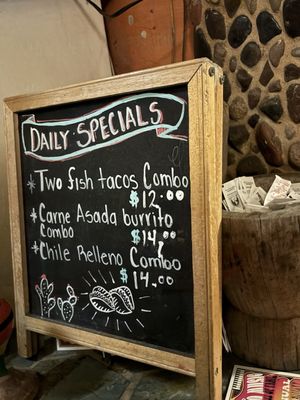 DAILY SPECIALS
* Two fish tacos Combo
$12.00
* Carne Asada burrito
Combo $14.00
* Chile Relleno Combo
$14.00